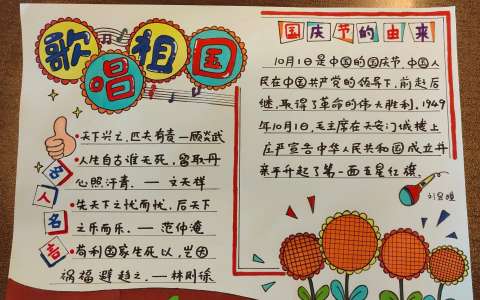 歌唱祖国
名人名言
天下兴亡,匹夫有责—顾炎武
人生自古谁无死,留取丹
心照汗青.—文天祥
先天下之忧而忧,后天下
之乐而乐.—范仲淹
苟利国家生死以,岂因
祸福避趋之.—林则徐
国庆节的由来
10月1日是中国的国庆节.中国人
民在中国共产党的领导下,前赴后
继,取得了革命的伟大胜利.1949
年10月1日,毛主席在天安门城楼上
庄严宣告中华人民共和国成立并
亲手升起了第一面五星红旗.